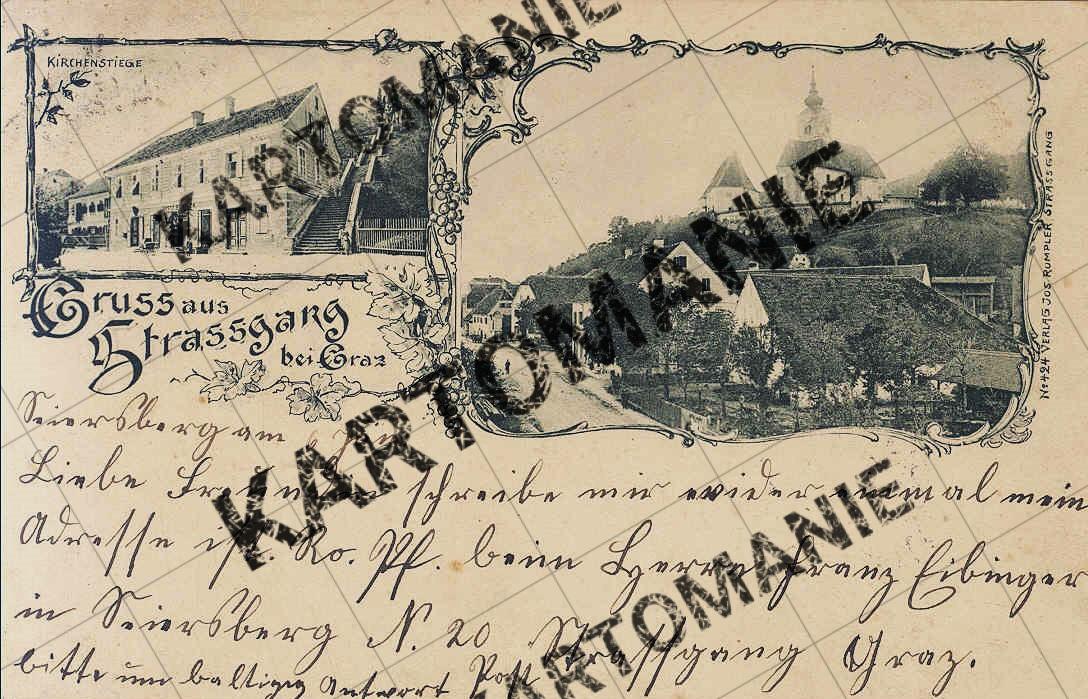 KIRCHENSTIEGE
Gruss aus
Strassgang
bei Graz
No 424 VERLAG JOS. RUMPLER STRASSGANG
Seiersberg am 6
Liebe Freundin schreibe mir wider einmal mein
Adresse ist Ro. Pf. beim Herrn Franz Eibinger
in Seiersberg N. 20 Strassgang Graz.
bitte um baltigg antwort Post
KARTOMANIE
KARTOMANIE
KARTOMANIE
KARTOMANIE